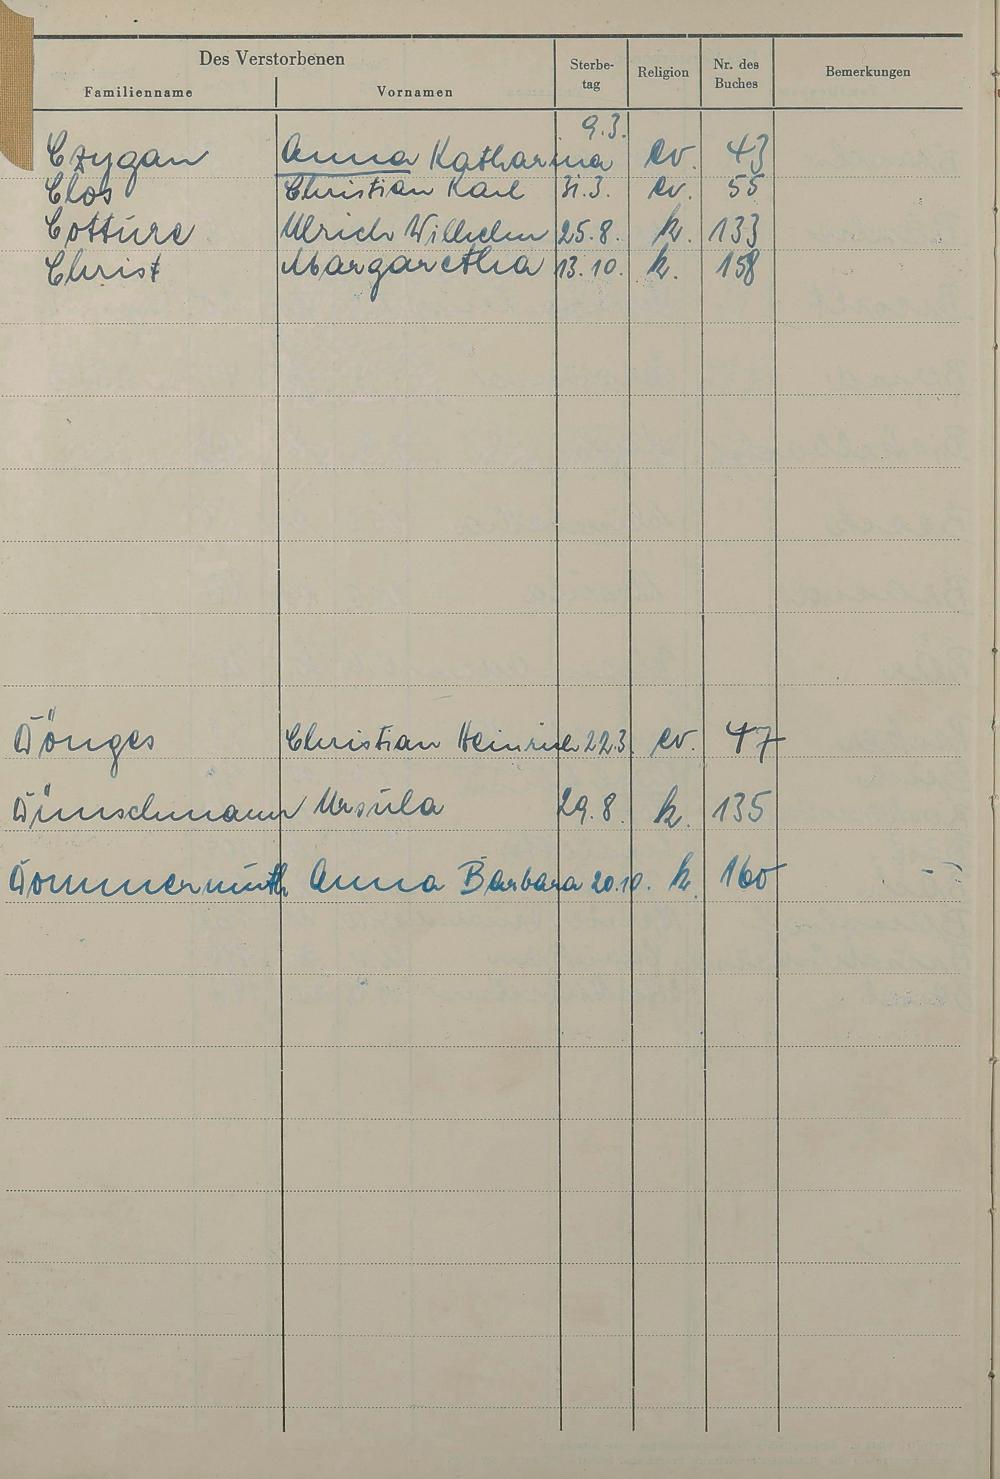 Des Verstorbenen
Familienname Vornamen Sterbe-tag Religion Nr. des Buches Bemerkungen
9.3.
Czygan Anna Katharina ev. 43
Clos Christian Karl 31.3. ev. 55
Cotture Ulrich Wilhelm 25.8. k. 133
Christ Margaretha 13.10. k. 158
Dönges Christian Heinrich 22.3. ev. 47
Dünschmann Ursula 29.8. k. 135
Dommermuth Anna Barbara 20.10. k. 160